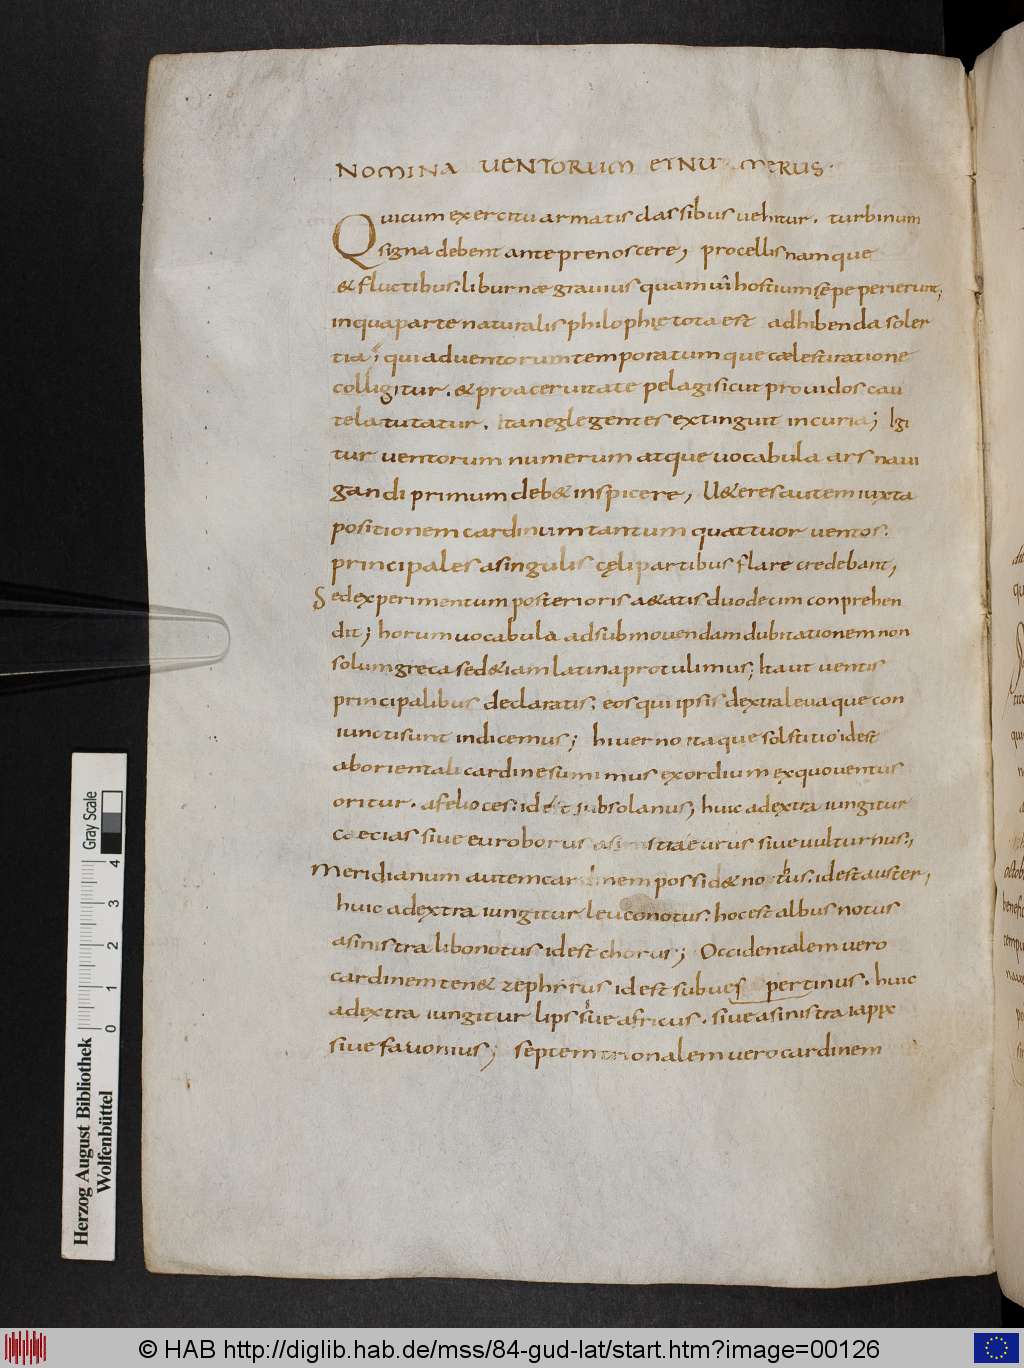 NOMINA UENTORUM ET NU MERUS.
Qui cum exercitu armatis classibus uehitur. turbinum
signa debent ante prenoscere, procellis namque
& fluctibus: liburnæ grauius quam ui hostium sępe perierunt;
in qua parte naturalis philophię tota est adhibenda soler
tia; qui aduentorum temporatum que cælesti ratione
colligitur. & pro aceruitate pelagi sicut prouidos cau
tela tutatur. Ita neglegentes extinguit incuria; Igi
tur uentorum numerum atque uocabula ars naui
gandi primum deb& inspicere, U&eres autem iuxta
positionem cardinum tantum quattuor uentos.
principales a singulis cęli partibus flare credebant,
Sed experimentum posterioris a&atis duodecim conprehen
dit; horum uocabula ad submouendam dubitationem non
solum greca sed&iam latina protulimus; Ita ut uentis
principalibus declaratis; eos qui ipsis dextra leuaque con
iuncti sunt indicemus; hiuerno itaque solstitio idest
ab orientali cardine sumimus exordium ex quo uentus
oritur. afelioces: id est subsolanus, huic a dextra iungitur
caecias siue euroborus a sinistra eurus siue uulturnus;
Meridianum autem cardinem possid& notus: idest auster,
huic a dextra iungitur leuconotus: hoc est albus notus
a sinistra libonotus idest chorus; Occidentalem uero
cardinem ten& zephirus id est subues pertinus. huic
a dextra iungitur lips siue africus. siue a sinistra iapix
siue fauonius; septemtrionalem uero cardinem
Herzog August Bibliothek
Wolfenbüttel
Gray Scale
0 1 2 3 4
© HAB http://diglib.hab.de/mss/84-gud-lat/start.htm?image=00126